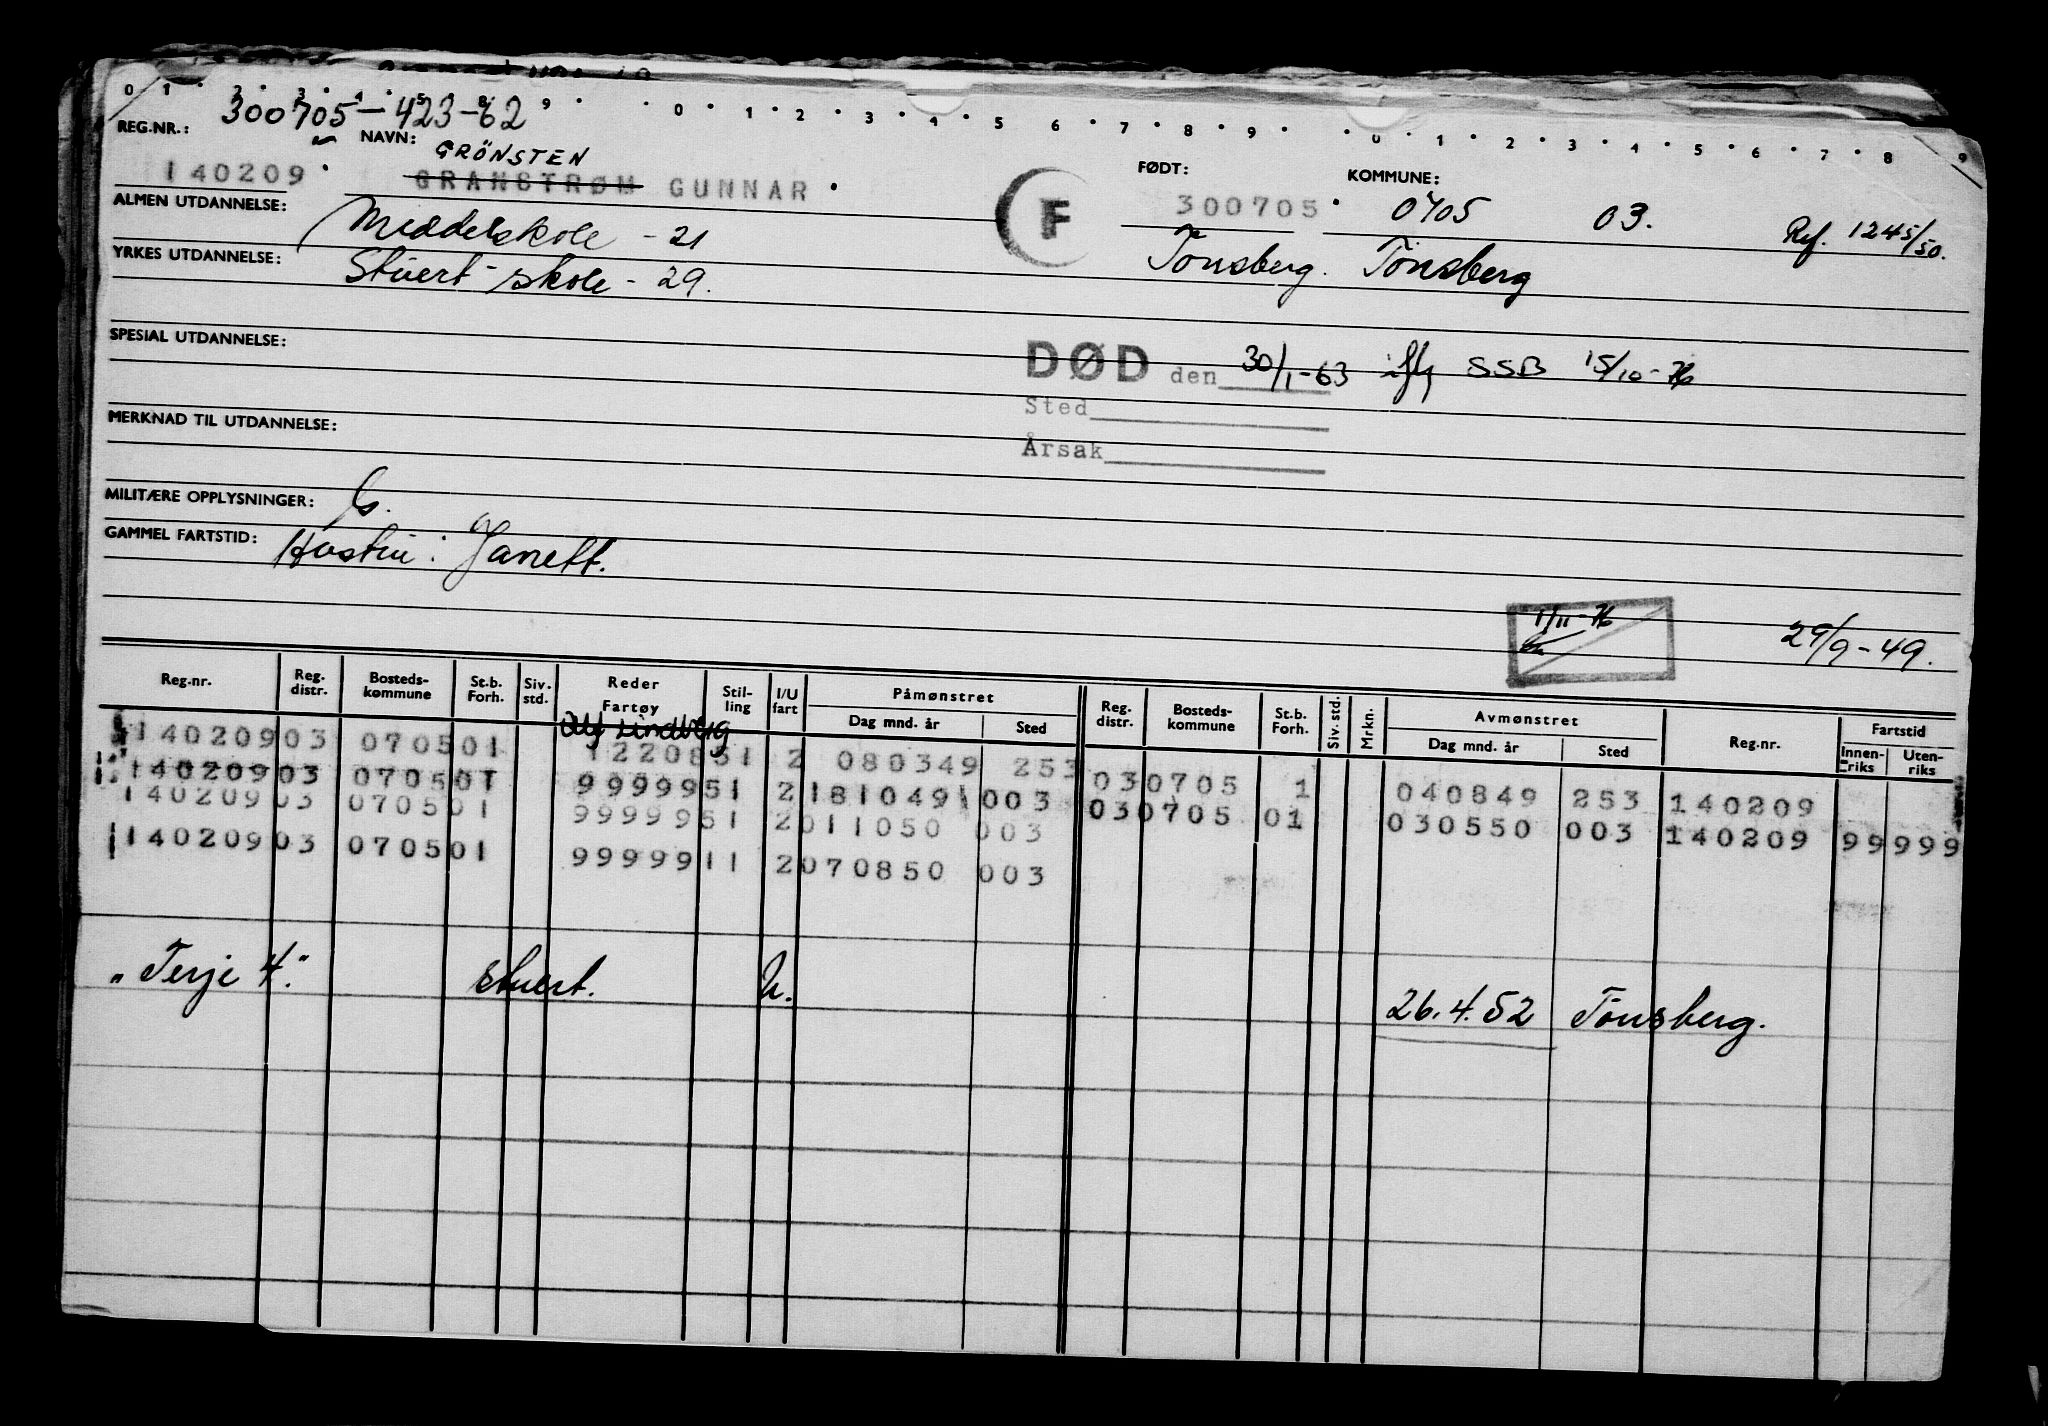 0 1 2 3 4 5 8 9 0 1 2 3 4 5 6 7 8 9 0 1 2 3 4 5 6 7 8 9
REG.NR.: 300705-423-62 NAVN: FØDT: KOMMUNE:
GRÖNSTEN
140209 GRANSTRØM GUNNAR F 300705 0705 03. Ref. 1245/50.
ALMEN UTDANNELSE: Middelskole - 21 Tönsberg. Tönsberg
YRKES UTDANNELSE: Stuert-skole - 29.
SPESIAL UTDANNELSE:
DØD den 30/1-63 iflg SSB 15/10-76
Sted
MERKNAD TIL UTDANNELSE:
Årsak
MILITÆRE OPPLYSNINGER:
GAMMEL FARTSTID: Hustru: Janett.
1/11-76 29/9-49.
Reg.nr. Reg. distr. Bosteds-kommune St.b. Forh. Siv. std. Reder Fartøy Stil-ling I/U fart Påmønstret Dag mnd. år Sted Reg. distr. Bosteds-kommune St.b. Forh. Siv. std. Mrkn. Avmønstret Dag mnd. år Sted Reg.nr. Fartstid Innen-riks Uten-riks
Alf Lindberg
140209 03 0705 01 12208 51 2 080349 253 03 0705 1 040849 253 140209
140209 03 0705 01 99999 51 2 181049 003 03 0705 01 030550 003 140209 99 999
140209 03 0705 01 99999 51 2 011050 003
140209 03 0705 01 99999 11 2 070850 003
"Terje 4." stuert. U. 26.4.52 Tönsberg.